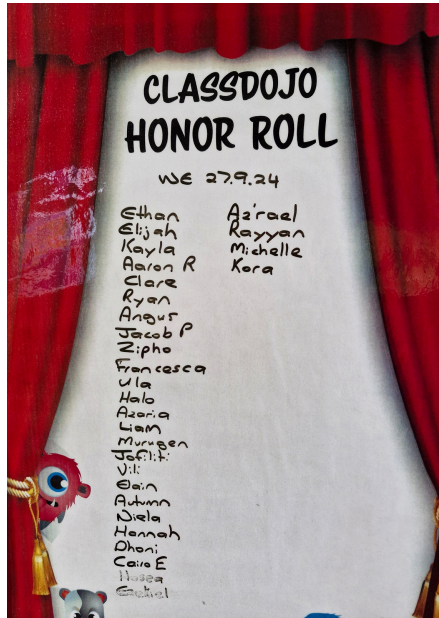 CLASSDOJO
HONOR ROLL
WE 27.9.24
Ethan
Elijah
Kayla
Aaron R
Clare
Ryan
Angus
Jacob P
Zipho
Francesca
Ula
Halo
Azaria
Liam
Murugen
Jofiliti
Vili
Oain
Autumn
Niela
Hannah
Dhoni
Cairo E
Hosea
Ezekiel
Az'rael
Rayyan
Michelle
Kora